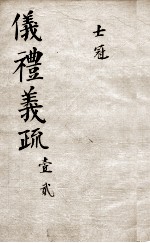 士冠
儀禮義疏
壹貳